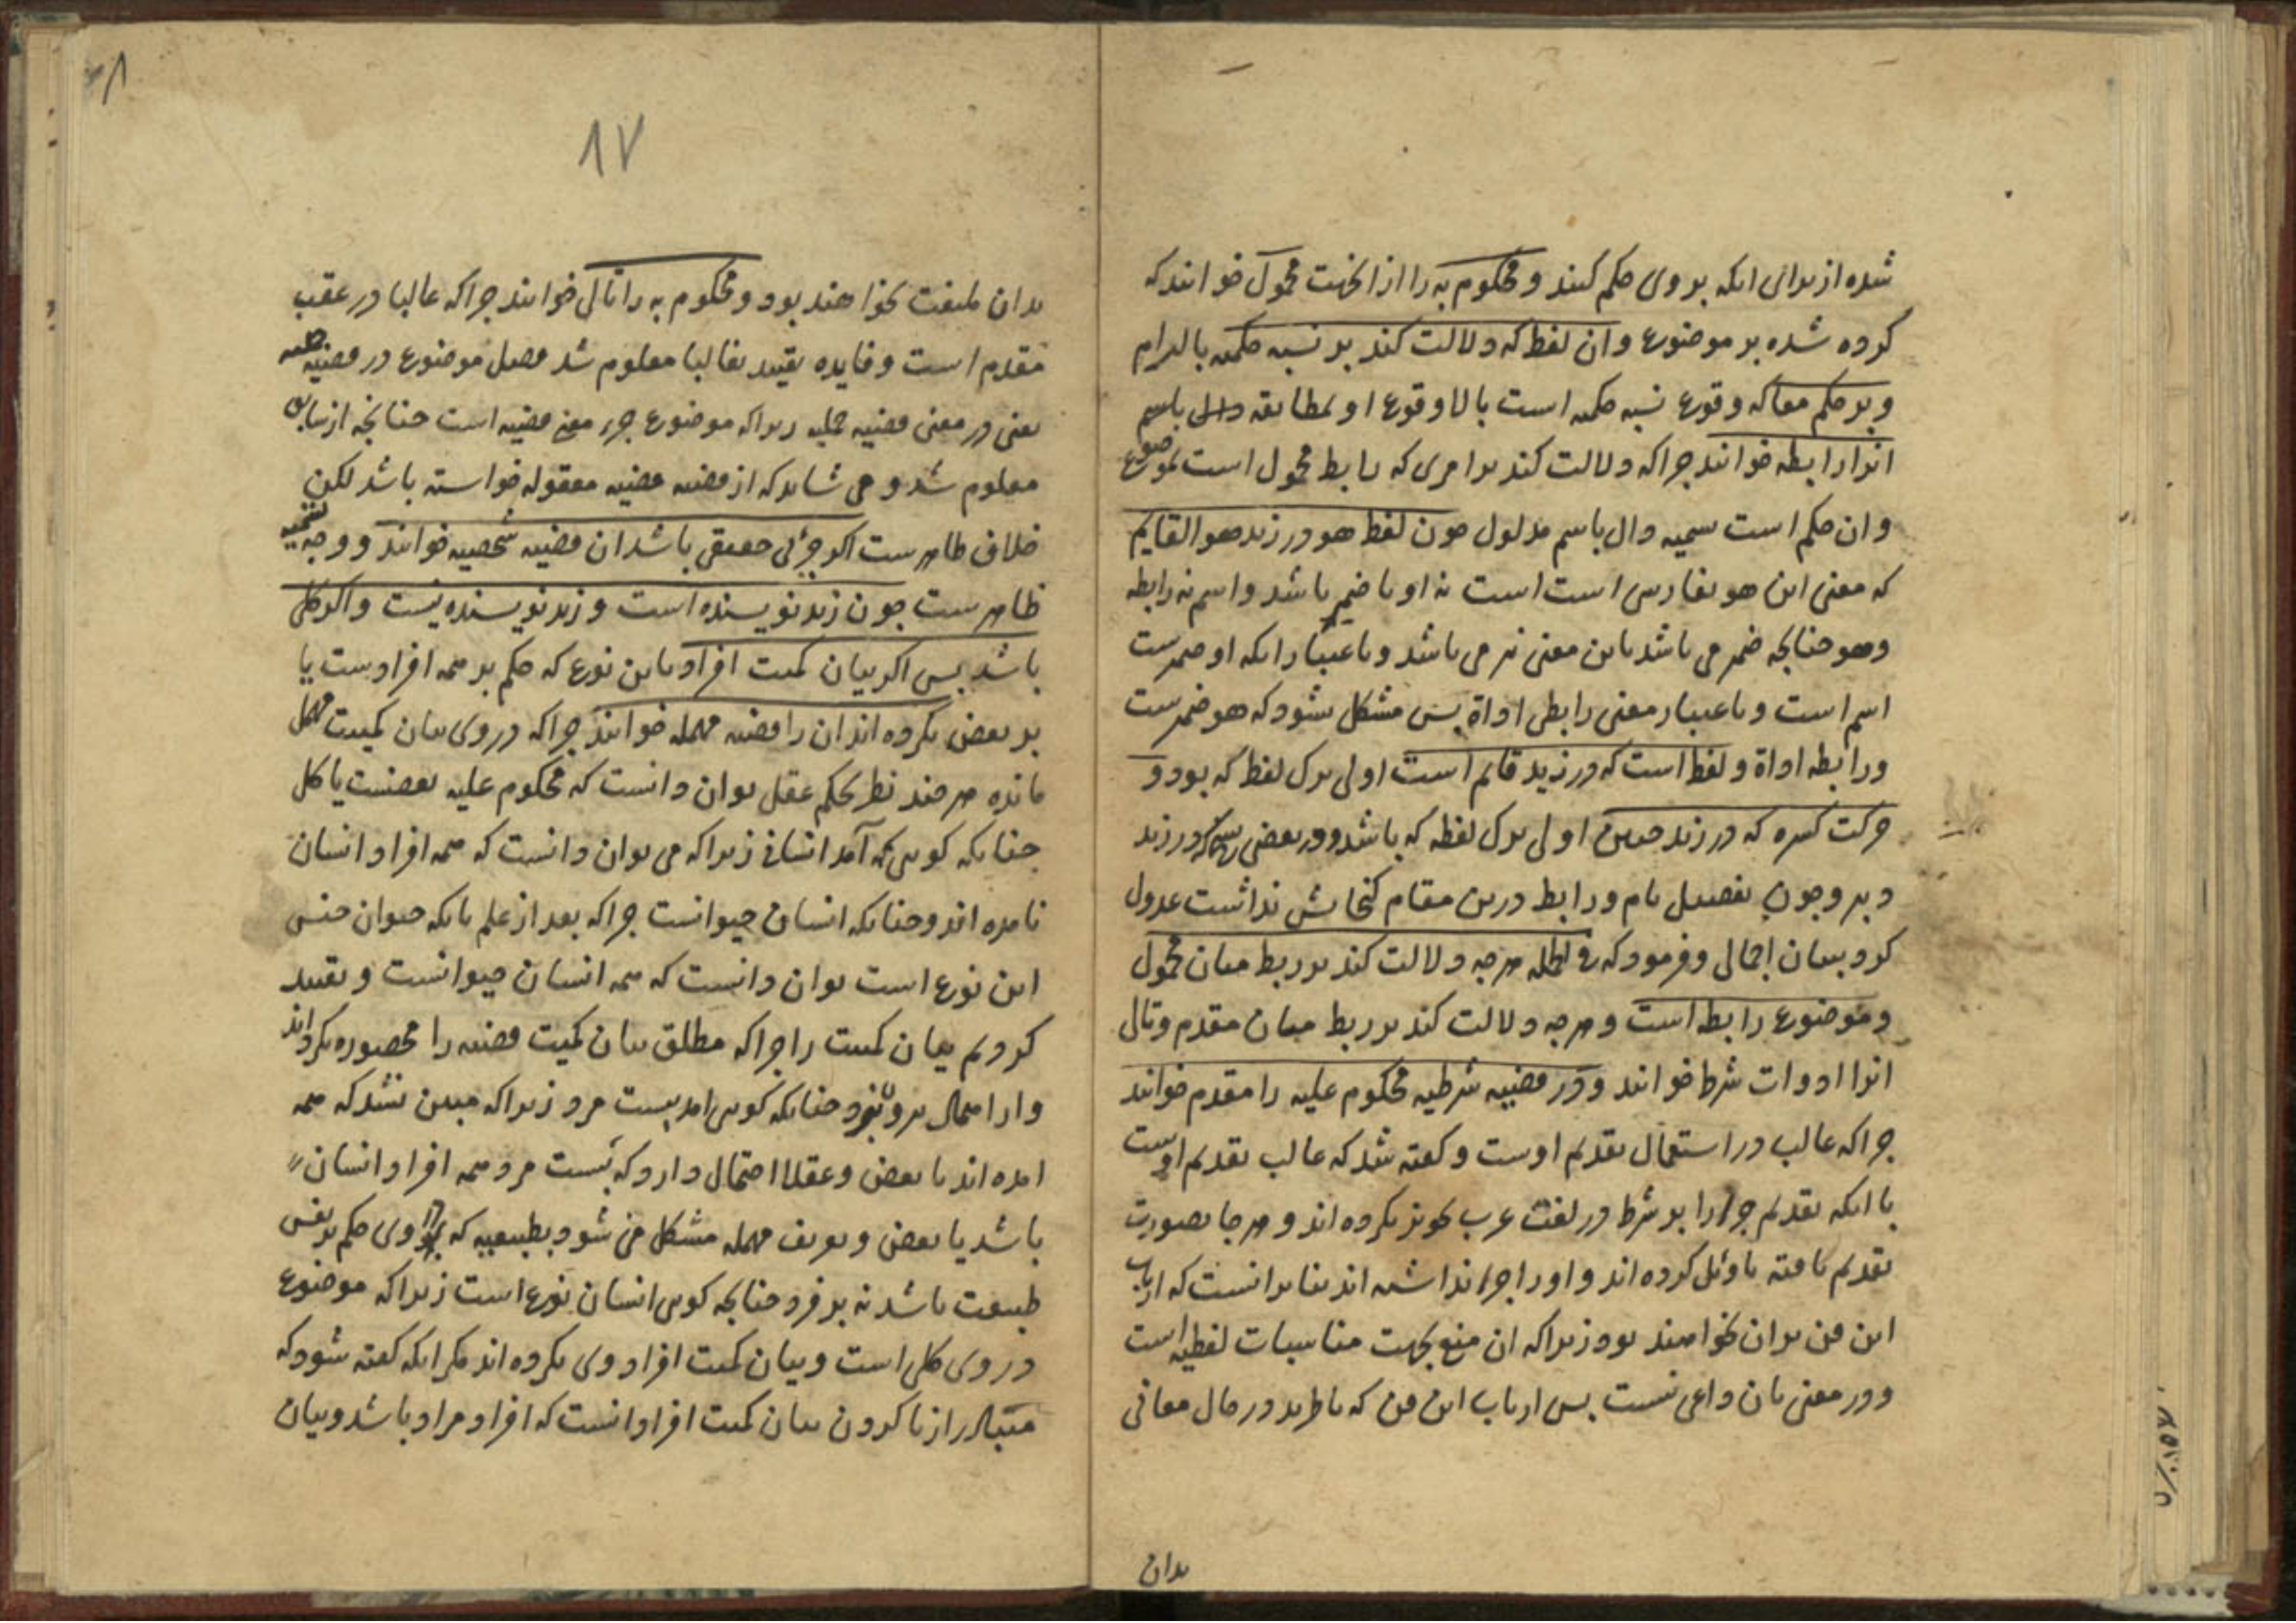 شده از برای انکه بر وی حکم کنند و محکوم به را از انجهت محمول خوانند که
کرده شده بر موضوع و ان لفظ که دلالت کند بر نسبه حکمیه بالتزام
و بر حکم معا که وقوع نسبه حکمیه است یا لا وقوع او بمطابقه دال باسم
انرا رابطه خوانند چراکه دلالت کند بر امری که رابط محمول است بموضوع
و ان حکم است تسمیه دال باسم مدلول چون لفظ هو در زید هو القایم
که معنی این هو بفارسی است است نه او تا ضمیر باشد و اسم نه رابطه
و هو چنانچه ضمیر می باشد باین معنی نیز می باشد و باعتبار انکه او ضمیرست
اسم است و باعتبار معنی رابطی اداة پس مشکل نشود که هو ضمیرست
و رابطه اداة و لفظ است که در زید قایم است اولی ترک لفظ که بود و
حرکت کسره که در زید اولی ترک لفظه که باشد و در بعضی در زید
دبیر و چون تفصیل تام و رابط درین مقام کنجایش نداشت عدول
کرد ببیان اجمالی و فرمود که فی الجمله هرچه دلالت کند بر ربط میان محمول
و موضوع رابط است و هرچه دلالت کند بر ربط میان مقدم و تالی
انرا ادوات شرط خوانند و در قضیه شرطیه محکوم علیه را مقدم خوانند
چراکه غالب در استعمال تقدیم اوست و کفته شد که غالب تقدیم اوست
با انکه تقدیم جزا را بر شرط در لغت عرب تجویز نکرده اند و هرجا بصورت
تقدیم یافته تاویل کرده اند و او را جزا نداشته اند بنا برانست که ارباب
این فن بران نخواهند بود زیراکه ان منع بجهت مناسبات لفظیه است
و در معنی بان داعی نیست پس ارباب این فن که ناظرند در حال معانی
بدان
۸۷
بدان ملتفت نخواهند بود و محکوم به را تالی خوانند چراکه غالبا در عقب
مقدم است و فایده تقیید بغالبا معلوم شد فصل موضوع در قضیه حملیه
یعنی در معنی قضیه حملیه زیراکه موضوع جزء معنی قضیه است چنانچه از سابق
معلوم شد و می شاید که از قضیه قضیه معقوله خواسته باشد لکن
خلاف ظاهرست اکر جزئی حقیقی باشد ان قضیه شخصیه خوانند و وجه تسمیه
ظاهرست چون زید نویسنده است و زید نویسنده نیست و اکر کلی
باشد پس اکر بیان کمیت افراد باین نوع که حکم بر همه افرادست یا
بر بعض نکرده اند ان را قضیه مهمله خوانند چراکه در وی بیان کمیت مهمل
مانده هرچند نظر بحکم عقل توان دانست که محکوم علیه بعضست یا کل
چنانکه کویی که آمد انسانی زیراکه می توان دانست که همه افراد انسان
نامده اند و چنانکه انسان حیوانست چراکه بعد از علم بانکه حیوان جنس
این نوع است توان دانست که همه انسان حیوانست و تقیید
کردیم بیان کمیت را چراکه مطلق بیان کمیت قضیه را محصوره نکرداند
و از اهمال بیرون نبرد چنانکه کویی امد بیست مرد زیراکه مبین نشد که همه
امده اند یا بعض و عقلا احتمال دارد که بیست مرد همه افراد انسان
باشد یا بعض و تعریف مهمله مشکل می شود بطبیعیه که در وی حکم بر نفس
طبیعت باشد نه بر فرد چنانچه کویی انسان نوع است زیراکه موضوع
در وی کلی است و بیان کمیت افراد وی نکرده اند مکر انکه کفته شود که
متبادر از نا کردن بیان کمیت افراد انست که افراد مراد باشد و بیان